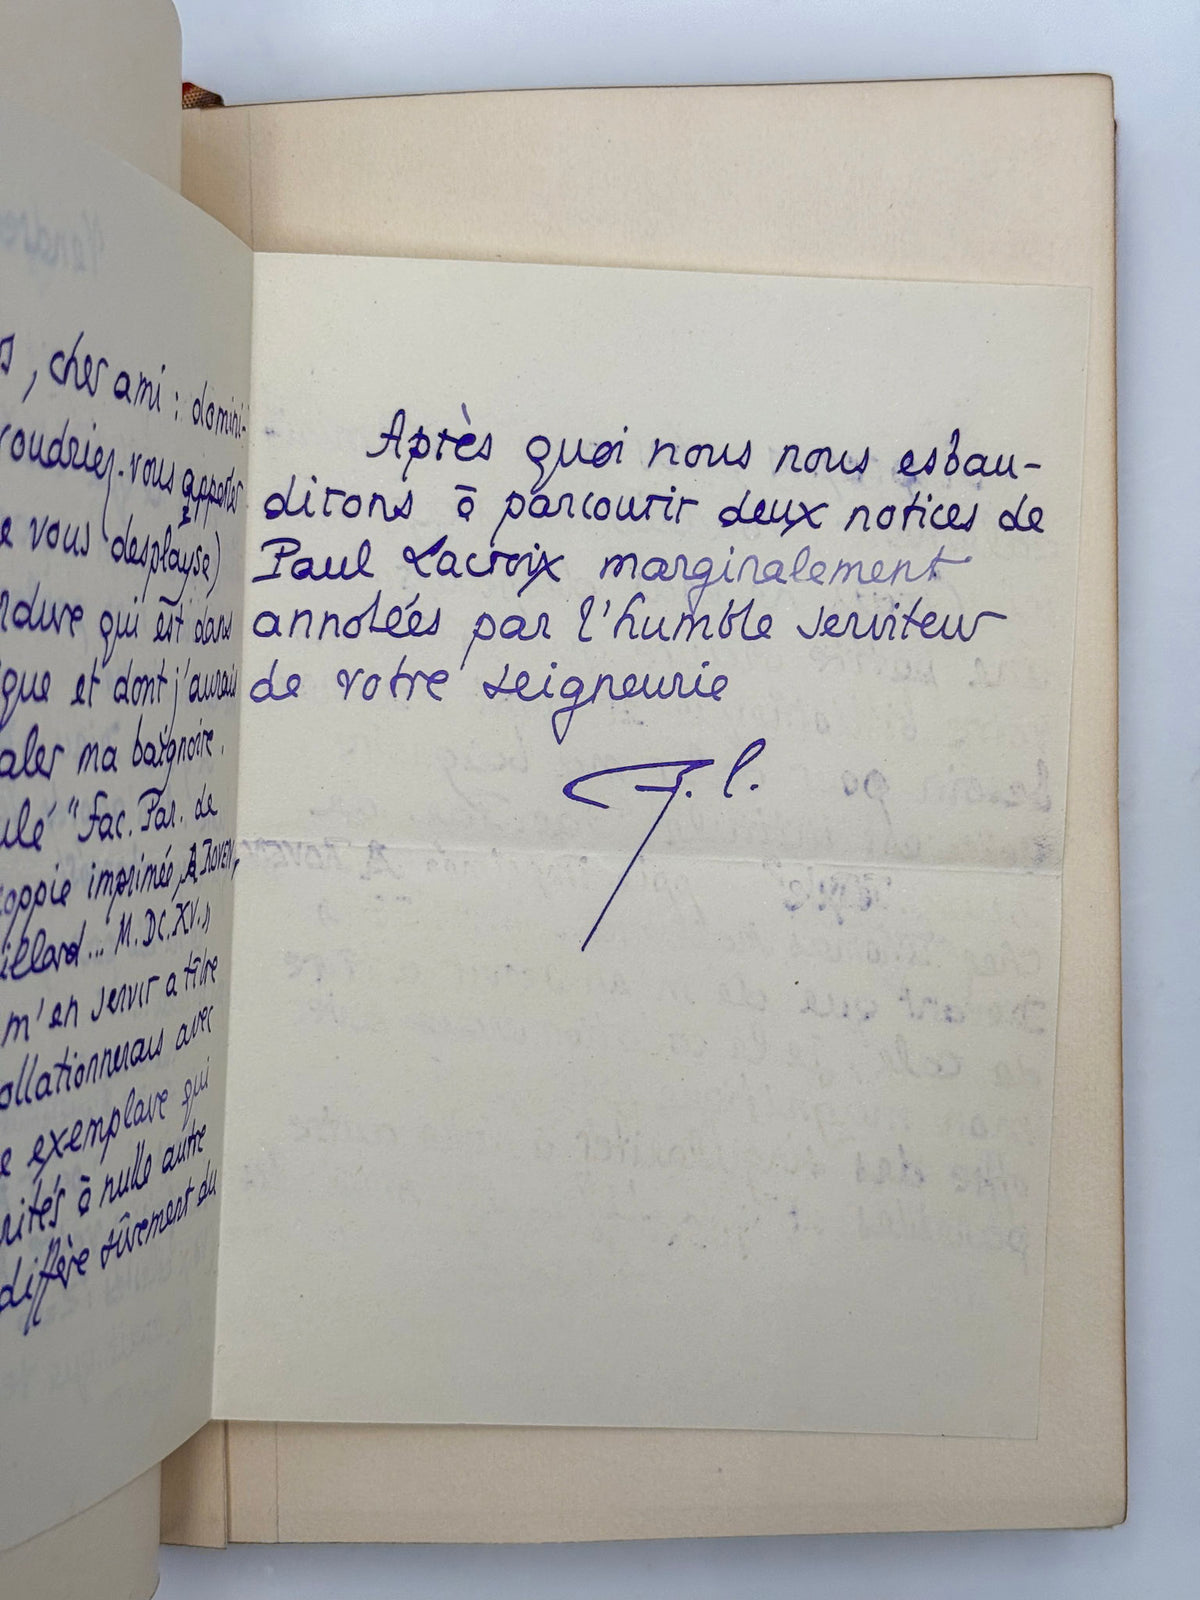 , cher ami : domini-
voudriez-vous apporter
vous desplayse)
qui est dans
et dont j'aurais
ma baignoire.
"Fac. Par. de
coppie imprimée, A ROVEN,
M.DC.XV."
m'en servir a titre
collationnerais avec
exemplare qui
à nulle autre
diffère sûrement du
Après quoi nous nous esbau-
dirons à parcourir deux notices de
Paul Lacroix marginalement
annotées par l'humble serviteur
de votre seigneurie
J. l.